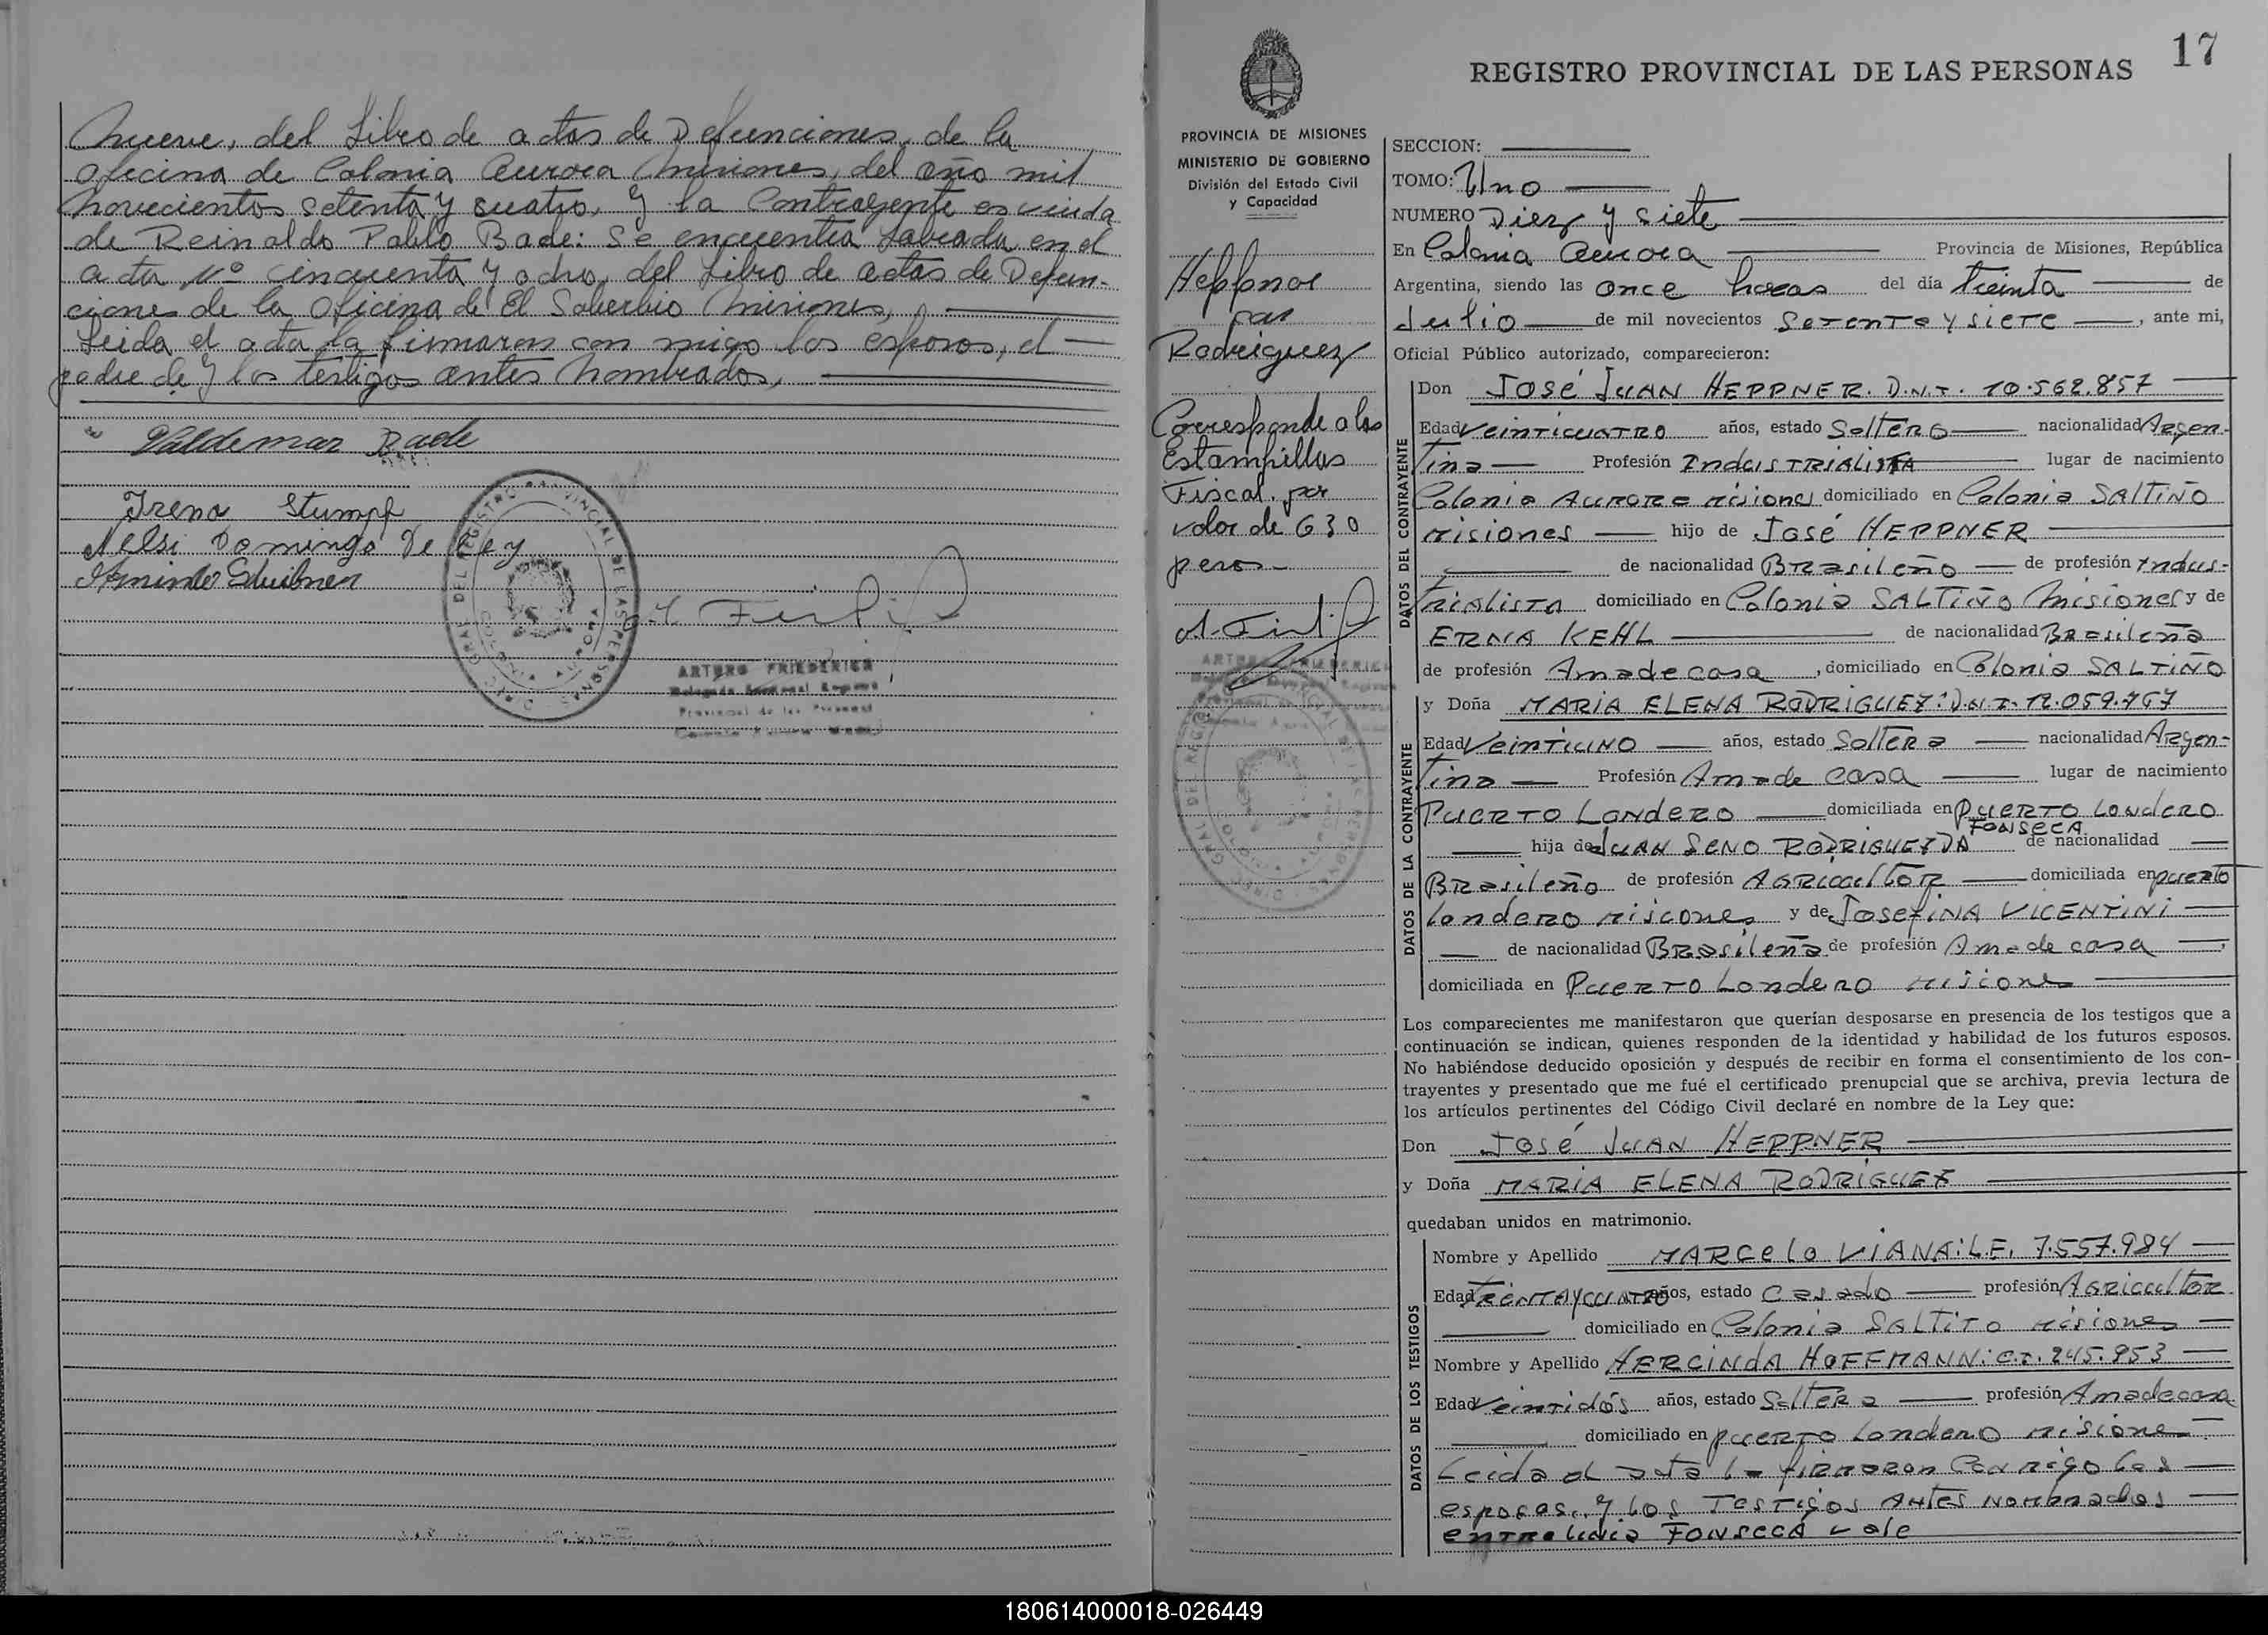 Nueve, del Libro de actas de Defunciones, de la
Oficina de Colonia Aurora Misiones, del año mil
novecientos setenta y cuatro, y la Contrayente es viuda
de Reinaldo Pablo Bade: Se encuentra labrada en el
acta Nº cincuenta y ocho, del Libro de actas de Defun-
ciones de la Oficina de El Soberbio Misiones,
Leida el acta la firmaron con migo los esposos, el
padre de y los testigos antes nombrados,
Valdemar Bade
Irena Stumpf
Nelsi Domingo De Rey
ARTURO FRIEDERICH
17
REGISTRO PROVINCIAL DE LAS PERSONAS
PROVINCIA DE MISIONES
MINISTERIO DE GOBIERNO
División del Estado Civil
y Capacidad
Heppner
con
Rodriguez
Corresponde a las
Estampillas
Fiscal. por
valor de 630
pesos
SECCION:
TOMO: Uno
NUMERO Diez y siete
En Colonia Aurora Provincia de Misiones, República
Argentina, siendo las once horas del día treinta de
Julio de mil novecientos SETENTA Y SIETE, ante mi,
Oficial Público autorizado, comparecieron:
DATOS DEL CONTRAYENTE
Don JOSÉ JUAN HEPPNER. D.N.I. 10.562.857
Edad VEINTICUATRO años, estado SOLTERO nacionalidad Argen-
Tina Profesión INDUSTRIALISTA lugar de nacimiento
Colonia AURORA Misiones domiciliado en Colonia SALTIÑO
Misiones hijo de José HEPPNER
de nacionalidad BRasileño de profesión Indus-
TRIALISTA domiciliado en Colonia SALTIÑO Misiones y de
ERNA KEHL de nacionalidad BRasileña
de profesión Ama de casa, domiciliado en Colonia SALTIÑO
DATOS DE LA CONTRAYENTE
y Doña MARIA ELENA RODRIGUEZ: D.N.I. 12.059.767
Edad VEINTIUNO años, estado SOLTERA nacionalidad ARgen-
Tina Profesión Ama de casa lugar de nacimiento
PUERTO LONDERO domiciliada en PUERTO LONDERO
FONSECA
hija de JUAN SENO RODRIGUEZ DA de nacionalidad
BRasileño de profesión AGRICULTOR domiciliada en puerto
Londero Misiones y de JOSEFINA VICENTINI
de nacionalidad BRasileña de profesión Ama de casa,
domiciliada en PUERTO Londero Misiones
Los comparecientes me manifestaron que querían desposarse en presencia de los testigos que a
continuación se indican, quienes responden de la identidad y habilidad de los futuros esposos.
No habiéndose deducido oposición y después de recibir en forma el consentimiento de los con-
trayentes y presentado que me fué el certificado prenupcial que se archiva, previa lectura de
los artículos pertinentes del Código Civil declaré en nombre de la Ley que:
Don JOSÉ JUAN HEPPNER
y Doña MARIA ELENA RODRIGUEZ
quedaban unidos en matrimonio.
DATOS DE LOS TESTIGOS
Nombre y Apellido MARCELO VIANA: L.E. 7.557.984
Edad TREINTAYCUATRO años, estado Casado profesión AGRICULTOR
domiciliado en Colonia SALTITO Misiones
Nombre y Apellido HERCINDA HOFFMANN: C.I. 245.953
Edad Veintidós años, estado Soltera profesión Ama de casa
domiciliado en puerto Londero Misiones
Leida el acta la firmaron Conmigo los
esposos, y los Testigos Antes nombrados
entrelinea FONSECA vale
180614000018-026449